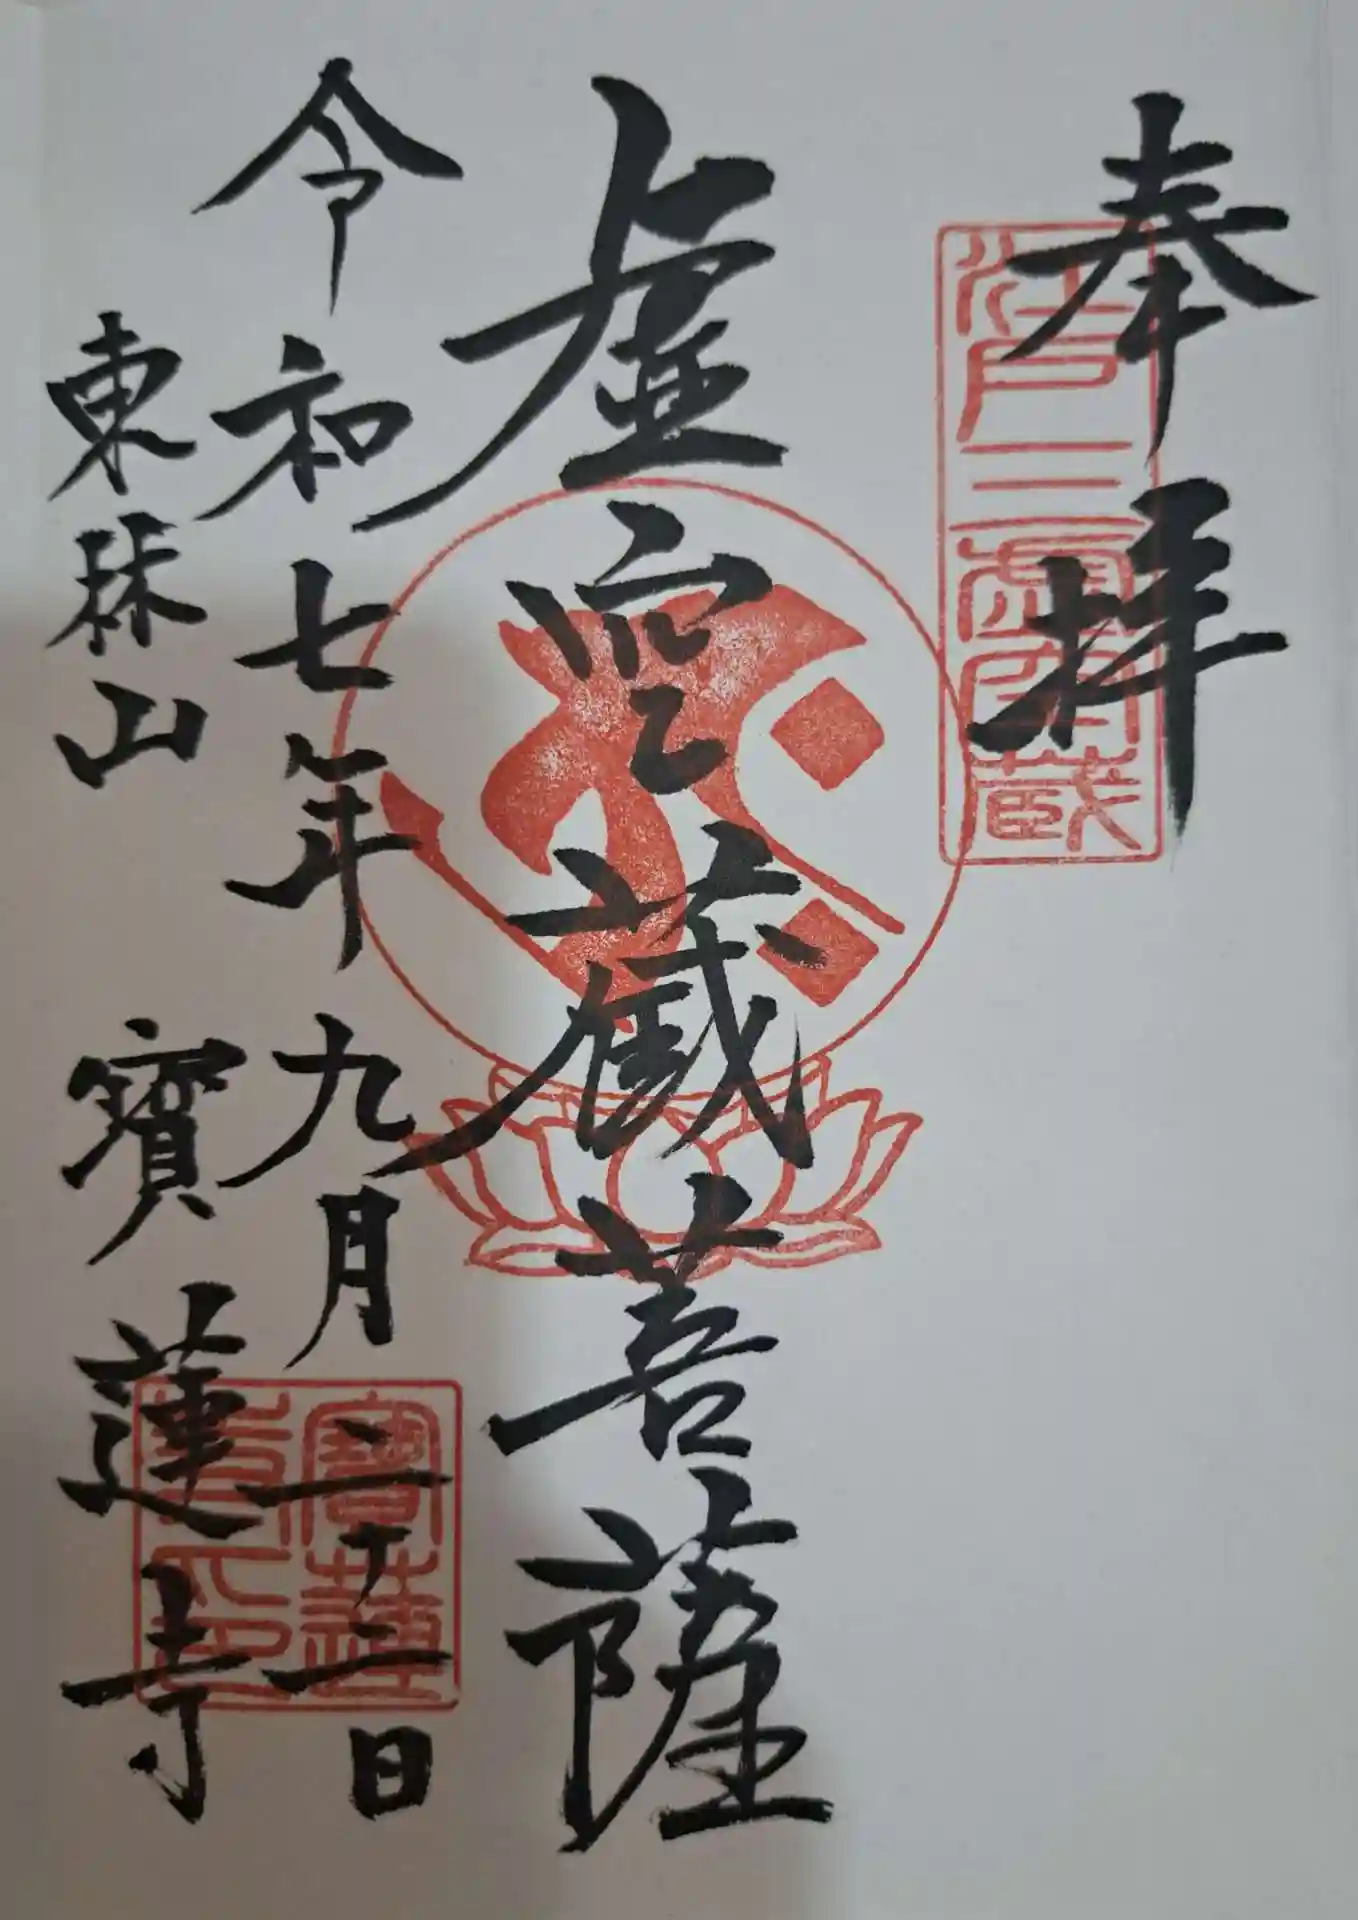 奉拝
江戸三虚空蔵
虚空蔵菩薩
令和七年九月二十二日
東林山 寶蓮寺
寶蓮寺印